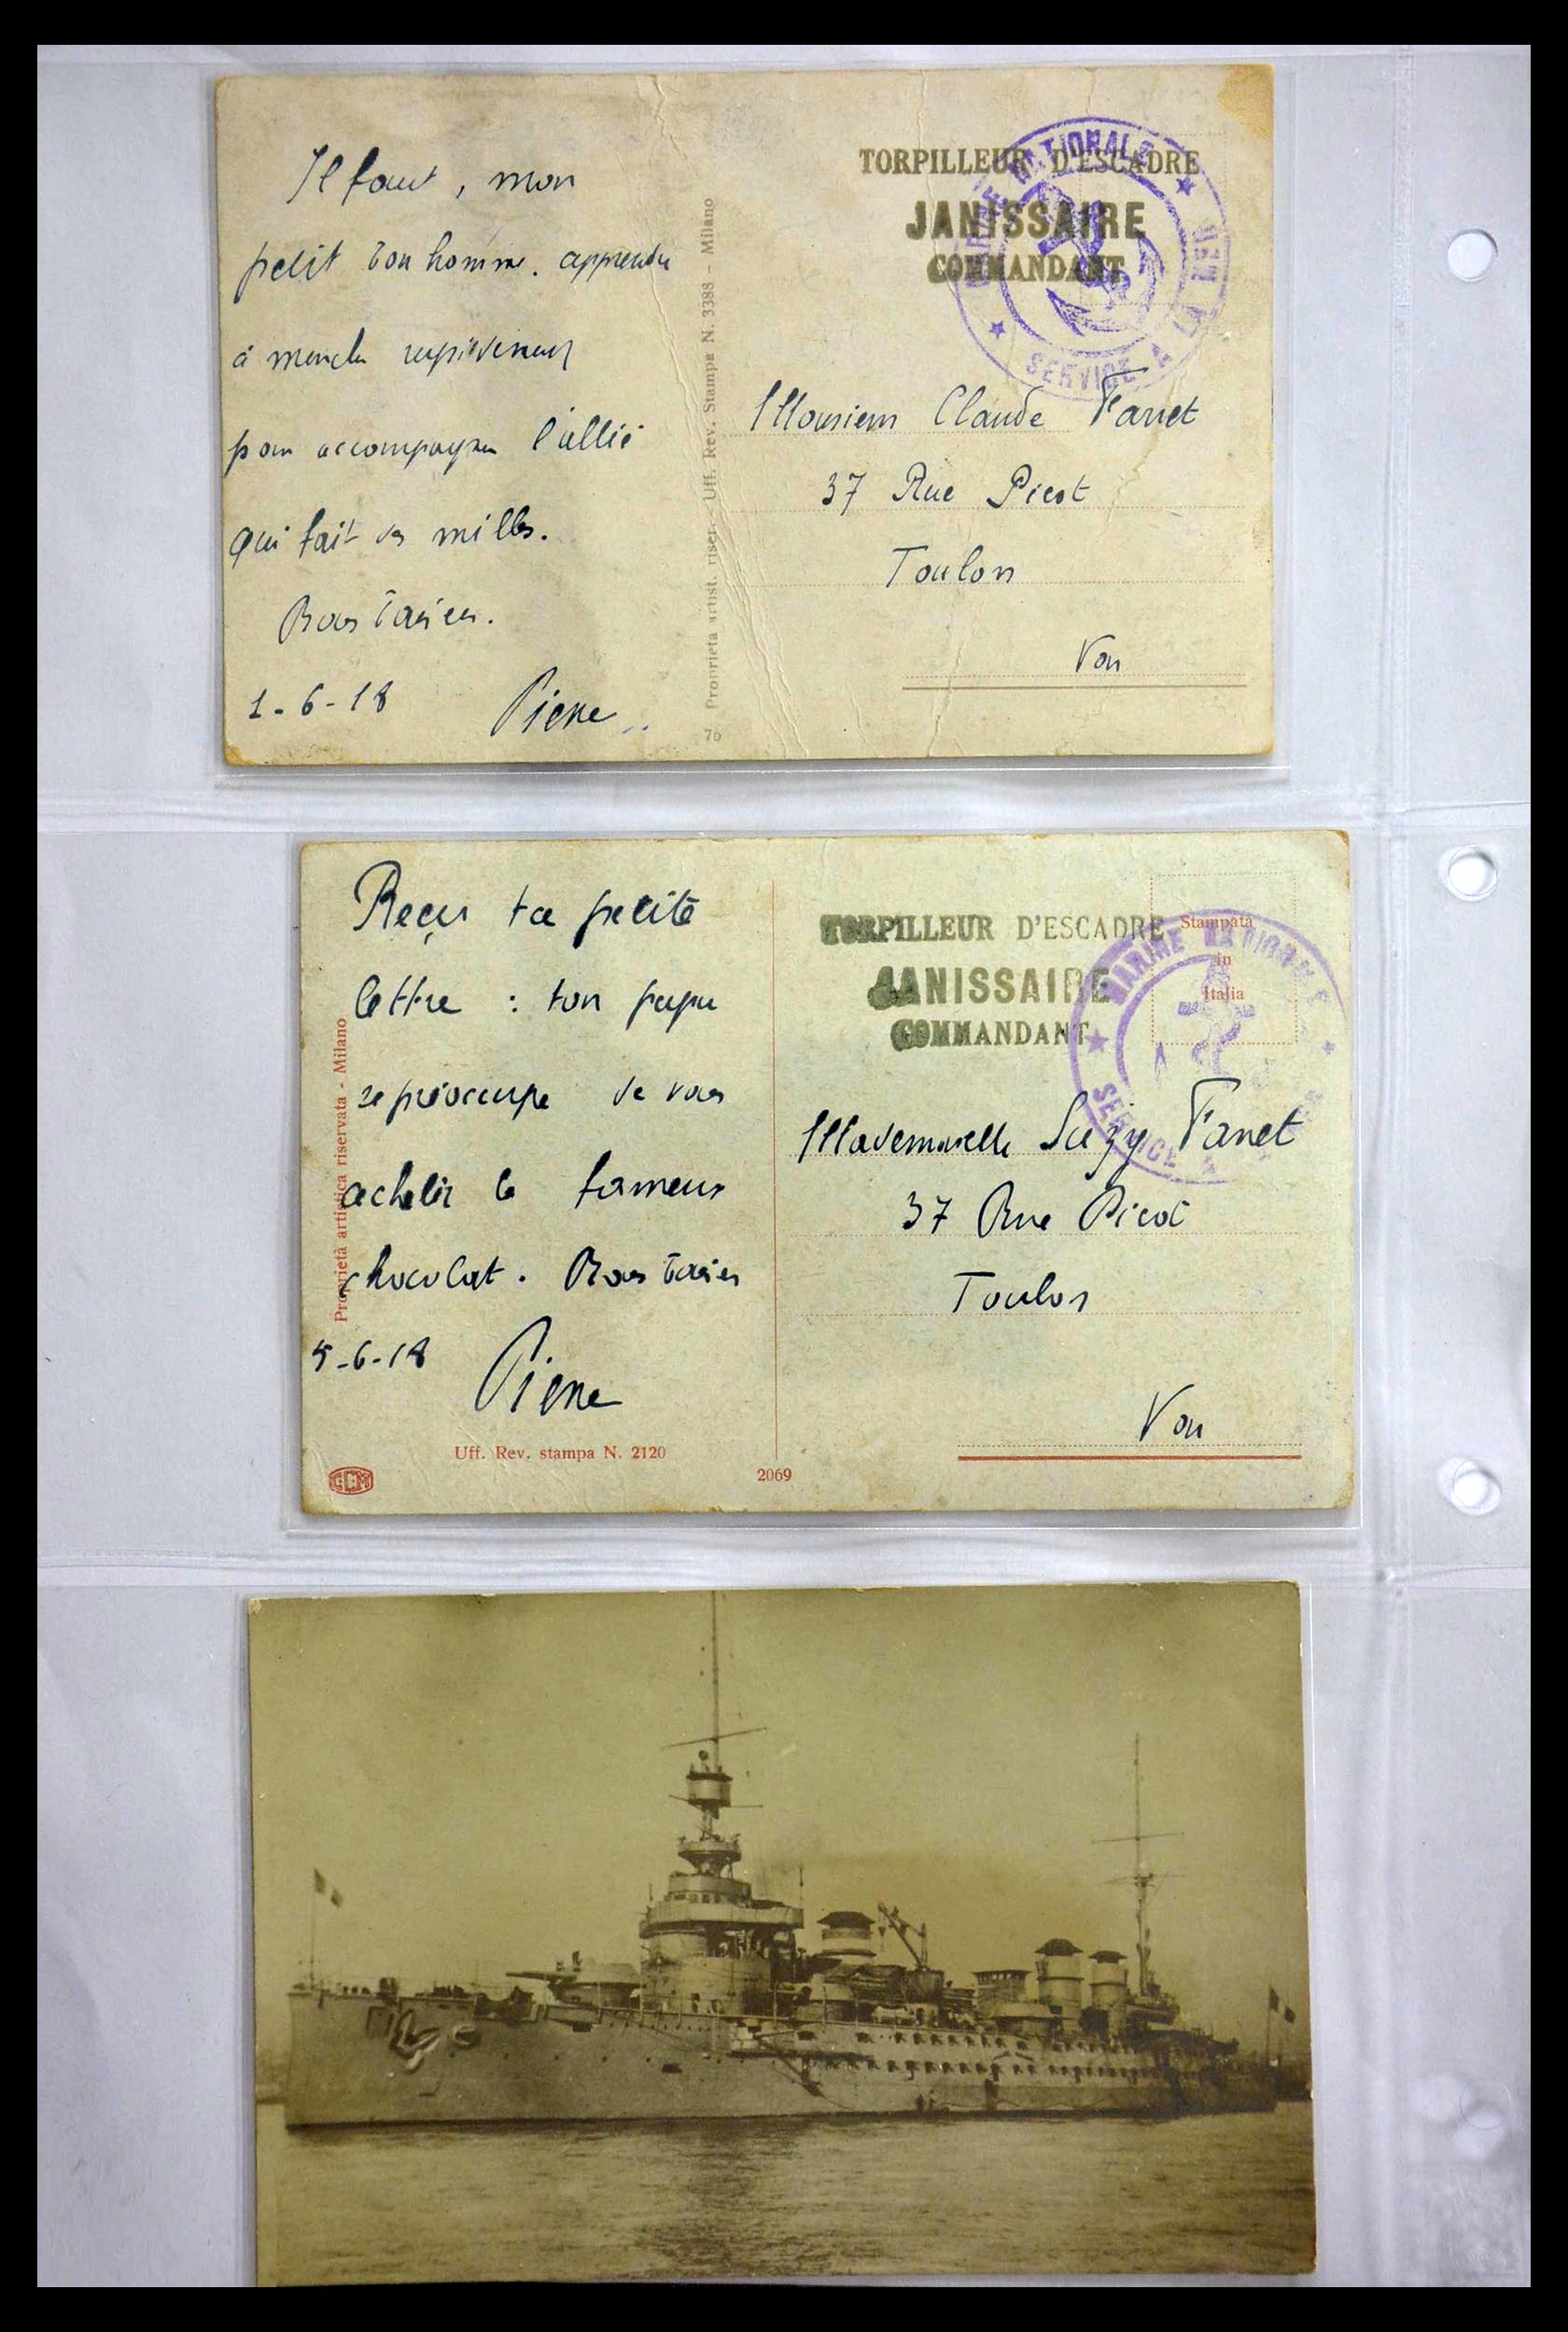 Il faut, mon
petit bonhomme. apprendre
à marcher rapidement
pour accompagner l'allié
qui fait des milles.
Bons baisers.
1-6-18 Pierre
76 Proprieta artist. riser. - Uff. Rev. Stampa N. 3388 - Milano
TORPILLEUR D'ESCADRE
JANISSAIRE
COMMANDANT
MARINE NATIONALE
SERVICE A LA MER
Monsieur Claude Farret
37 Rue Picot
Toulon
Var
Reçu ta petite
lettre : ton papa
se préoccupe de vous
acheter le fameux
chocolat. Bons baisers
5-6-18 Pierre
Proprietà artistica riservata - Milano
Uff. Rev. stampa N. 2120
CCM
2069
TORPILLEUR D'ESCADRE
JANISSAIRE
COMMANDANT
Stampata
in
Italia
MARINE NATIONALE
SERVICE A
Mademoiselle Suzy Farret
37 Rue Picot
Toulon
Var